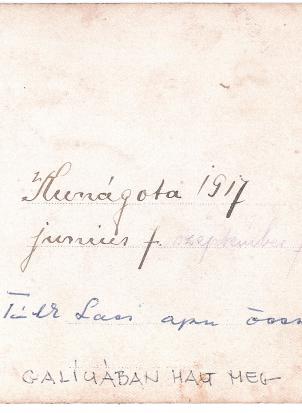 Kunágota 1917
junius f. szeptember
Laci apu
GALÍCIÁBAN HALT MEG